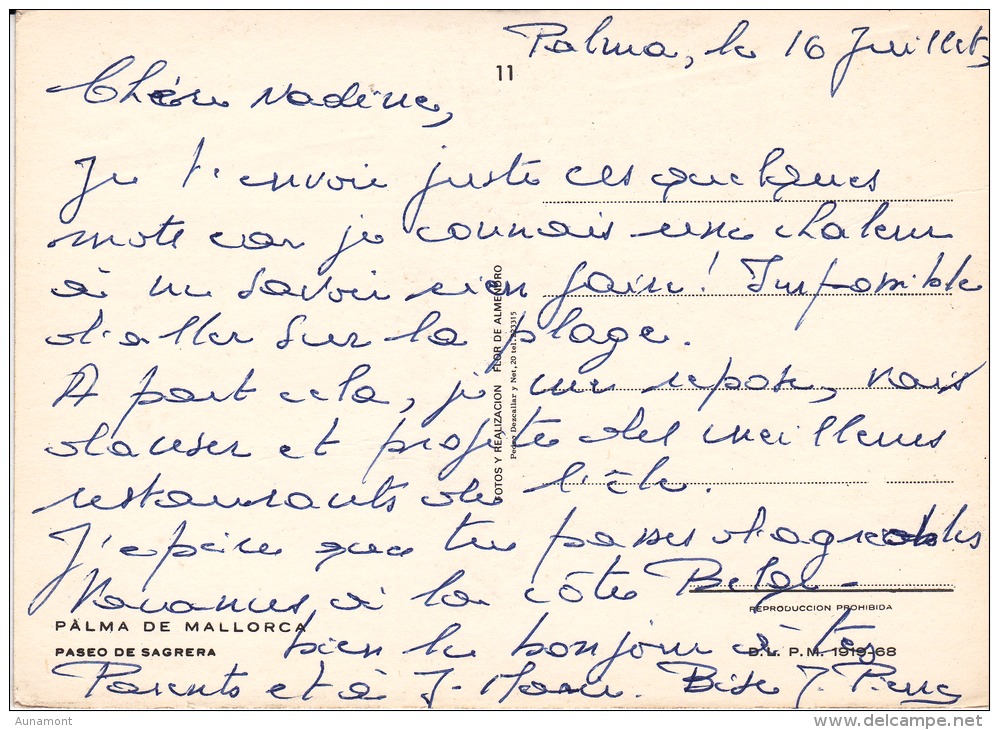 Palma, le 16 Juillet,
11
Chère Nadine,
Je t'envoie juste ces quelques
mots car je connais une chaleur
à ne savoir rien faire! Impossible
d'aller sur la plage.
A part cela, je me repose, vais
danser et profite des meilleurs
restaurants de l'île.
J'espère que tu passes d'agréables
Vacances, à la côte Belge -
bien le bonjour à tes
Parents et à J. Marc. Bise J. Pierre
FOTOS Y REALIZACION FLOR DE ALMENDRO
Pedro Dezcallar y Net, 20 tel. 223315
REPRODUCCION PROHIBIDA
PALMA DE MALLORCA
PASEO DE SAGRERA
D. L. P. M. 1919-68
Aunamont
delcampe.net